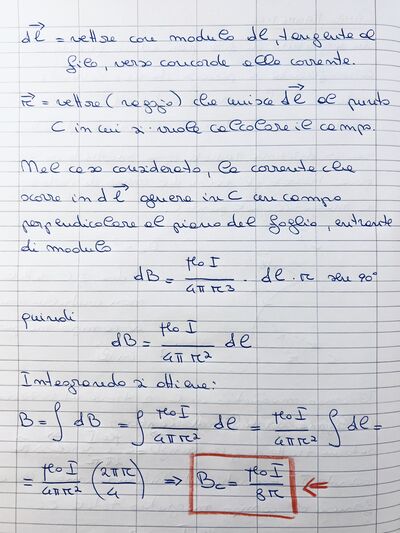 dl⃗ = vettore con modulo dl, tangente al
filo, verso concorde alla corrente.
r⃗ = vettore (raggio) che unisce dl⃗ al punto
C in cui si vuole calcolare il campo.
Nel caso considerato, la corrente che
scorre in dl⃗ genera in C un campo
perpendicolare al piano del foglio, entrante
di modulo
dB = μ₀ I / 4π r³ · dl · r sen 90°
quindi
dB = μ₀ I / 4π r² dl
Integrando si ottiene:
B = ∫ dB = ∫ μ₀ I / 4π r² dl = μ₀ I / 4π r² ∫ dl =
= μ₀ I / 4π r² (2πr / 4) ⇒ B_C = μ₀ I / 8 r ⇐